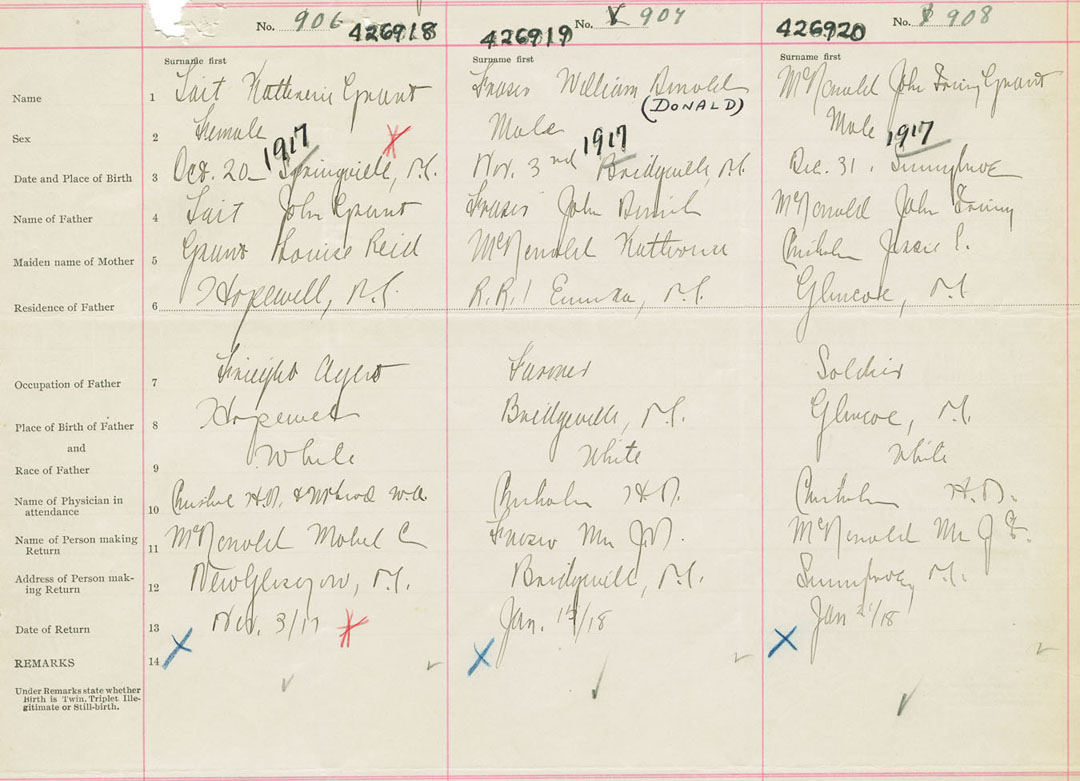 No. 906 426918 No. 907 426919 No. 908 426920
Surname first Surname first Surname first
Name 1 Tait Katherine Grant Fraser William Arnold McDonald John Irving Grant
(DONALD)
Sex 2 Female Male Male
1917 1917 1917
Date and Place of Birth 3 Oct. 20 Springville, N.S. Nov. 3rd Bridgeville, N.S. Dec. 31. Sunnybrae
Name of Father 4 Tait John Grant Fraser John McDonald John Irving
Maiden name of Mother 5 Grant Louise Reid McDonald Chisholm Jessie
Residence of Father 6 Hopewell, N.S. R.R.1 Eureka, N.S. Glencoe, N.S
Occupation of Father 7 Freight Agent Farmer Soldier
Place of Birth of Father 8 Hopewell Bridgeville, N.S. Glencoe, N.S.
and
Race of Father 9 White White White
Name of Physician in
attendance 10 & Chisholm H.D. Chisholm H.D.
Name of Person making
Return 11 McDonald Mabel C Fraser Mrs J.D. McDonald Mrs J I.
Address of Person mak-
ing Return 12 New Glasgow, N.S. Bridgeville, N.S. Sunnybrae, N.S.
Date of Return 13 Nov. 3/17 Jan. /18 Jan /18
REMARKS 14
Under Remarks state whether
Birth is Twin, Triplet, Ille-
gitimate or Still-birth.